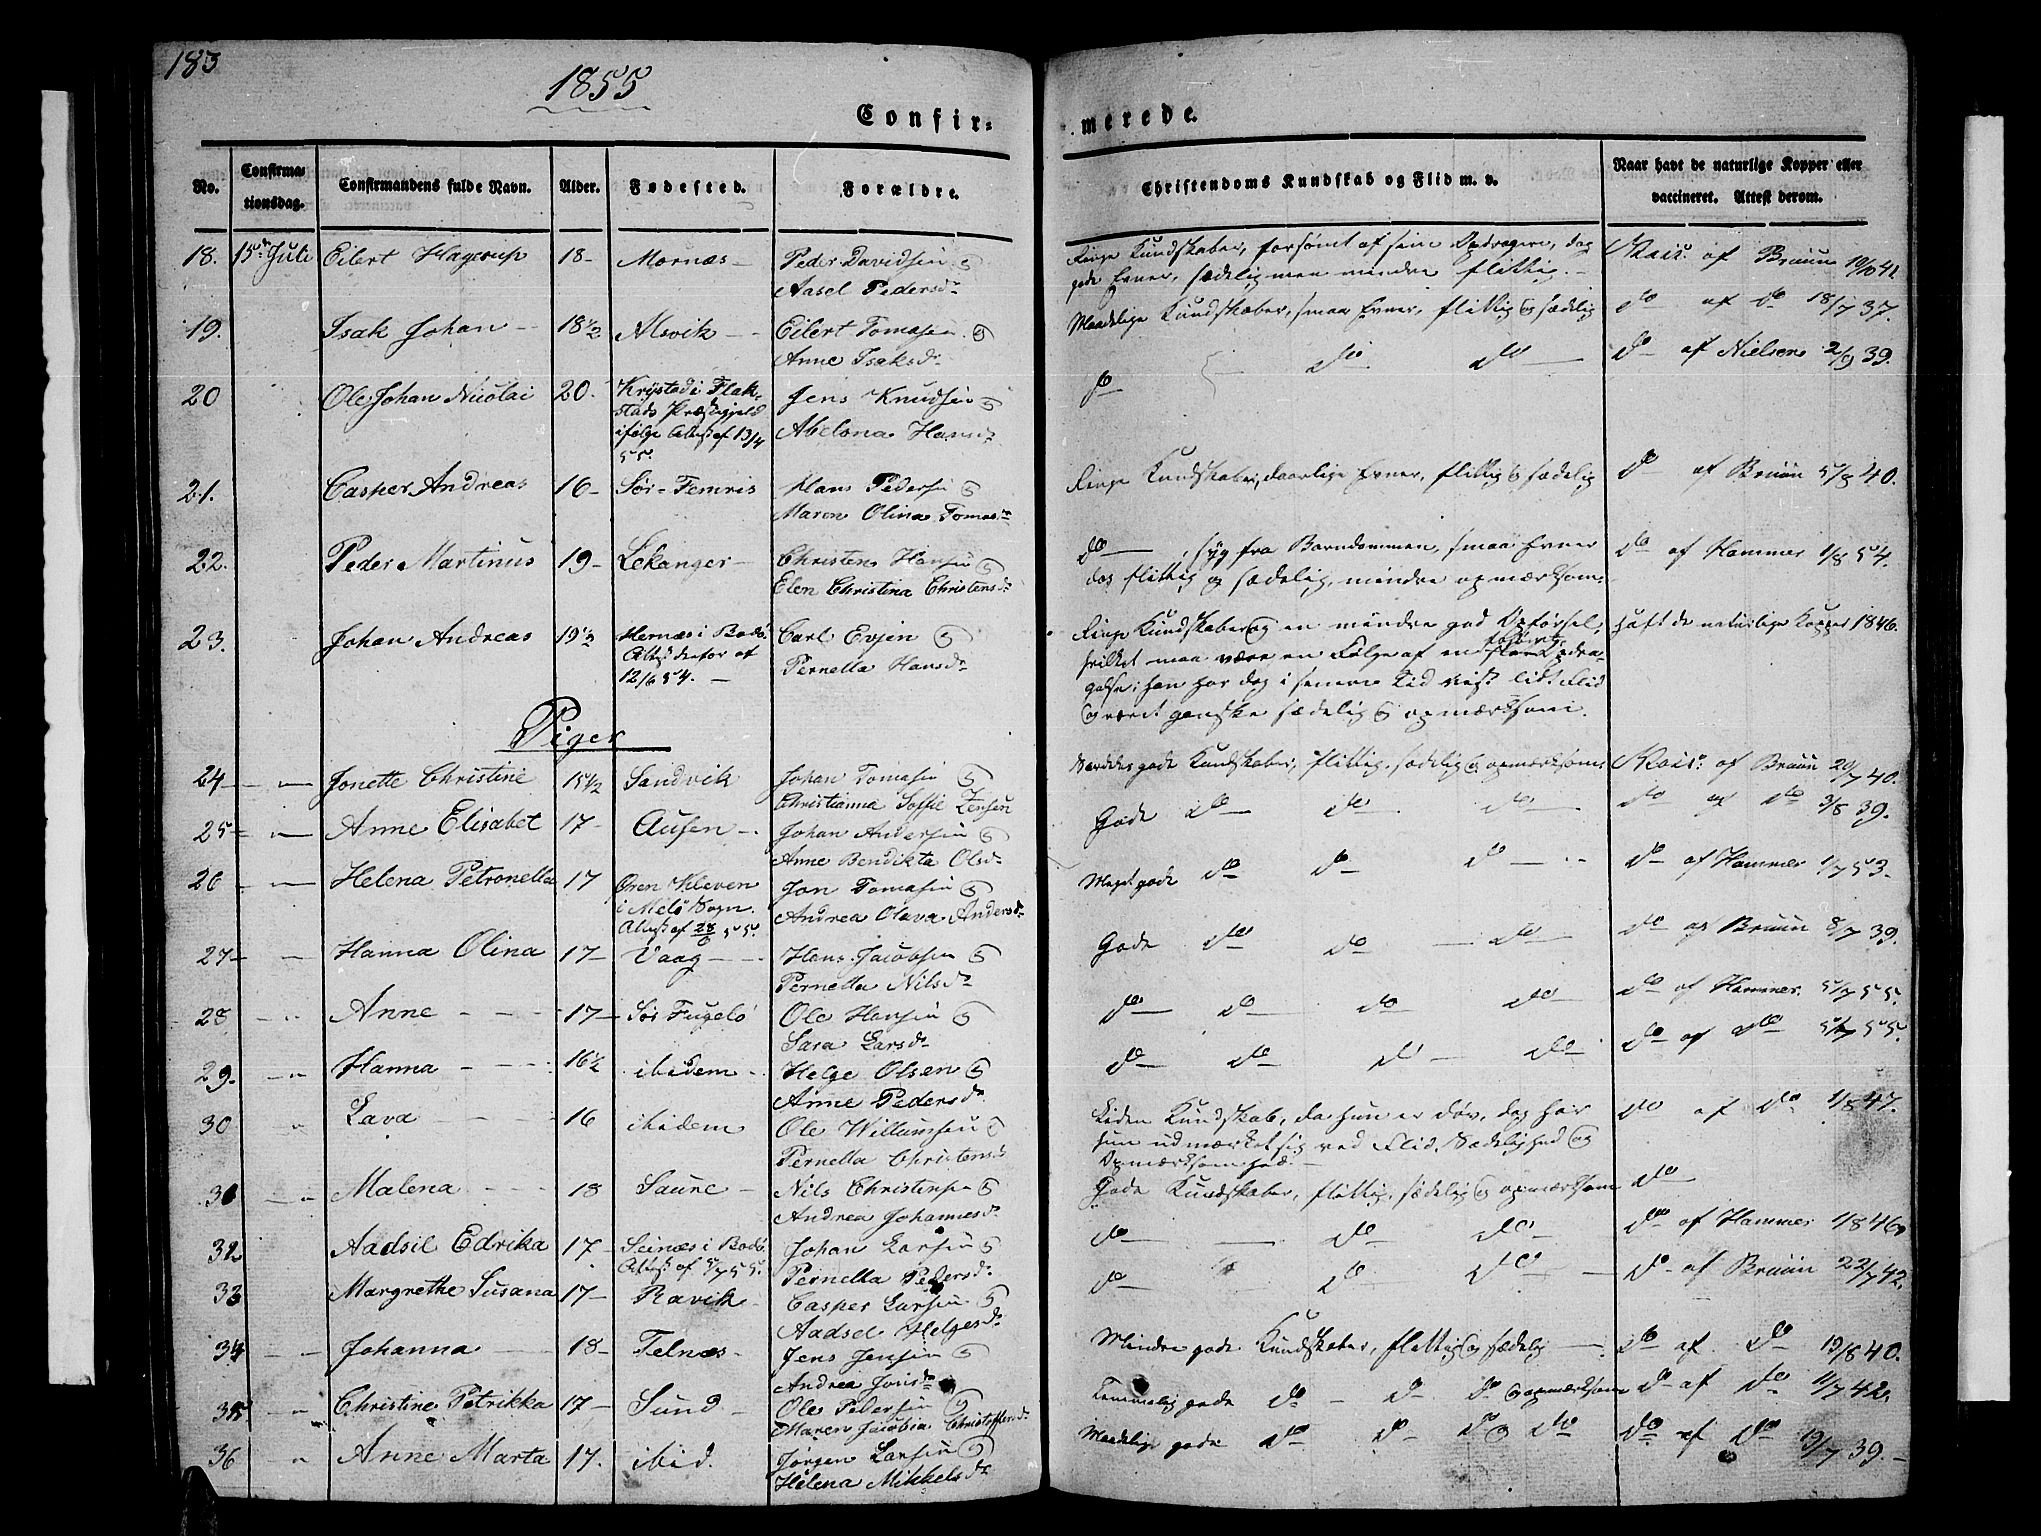 183
1855
Confir-
merede.
No.
Confirma-
tionsdag.
Confirmandens fulde Navn.
Alder.
Fødested.
Forældre.
Christendoms Kundskab og Flid m. v.
Naar havt de naturlige Kopper eller
vaccineret. Attest derom.
18. 15de Juli Eilert Hagerup 18 - Mornæs - Peder Davidsen og
Aasel Pedersdr
Ringe Kundskaber, forsømt af sine Opdragere, dog
gode Evner, sædelig men mindre flittig. -
Vacc. af Bruun 10/10 41.
19. Isak Johan - 18 1/2 Alsvik - Eilert Tomasen og
Anne Isaksdr
Maadelige Kundskaber, smaa Evner, flittig og sædelig
do af do 18/7 37.
20 Ole Johan Nicolai 20. Krystad i Flak-
stads Præstegjeld
ifølge Attest af 13/4
55.
Jens Knudsen og
Abelona Hansdr
do do do
do af Nielsen 2/9 39.
21. Casper Andreas 16 - Sør-Femris Hans Pedersen og
Maren Olina Tomasdr
Ringe Kundskaber, daarlige Evner, flittig og sædelig
do af Bruun 5/8 40.
22. Peder Martinus 19 - Lekanger - Christen Hansen og
Elen Christina Christensdr
do, syg fra Barndommen, smaa Evner
dog flittig og sædelig, mindre opmærksom.
do af Hammer 1/8 54.
23. Johan Andreas 19 1/2 Hernæs i Bodø.
Attest derfor af
12/6 54. -
Carl Evjen og
Pernella Hansdr
Ringe Kundskaber og en mindre god Opførsel,
hvilket maa være en Følge af en Opdra-
gelse; han har dog i senere Tid vist lidt Flid
og været ganske sædelig og opmærksom.
Haft de naturlige Kopper 1846.
Piger
24 - " - Jonette Christine 15 1/2 Sandvik Johan Tomasen og
Christianna Soffie Jensen
Særdeles gode Kundskaber, flittig, sædelig og opmærksom
Vacc. af Bruun 20/7 40.
25 - " - Anne Elisabet 17 - Ausen - Johan Andersen og
Anne Bendikta Olsdr
Gode do do do
do af do 3/8 39.
26 - " - Helena Petronella 17 Øren Kleven
i Melø Sogn.
Attest af 28/6 55.
Jon Tomasen og
Andrea Olava Andersdr
Meget gode do do do
do af Hammer 1/7 53.
27 - " - Hanna Olina 17 - Vaag - Hans Jacobsen og
Pernella Nilsdr
Gode do do do
do af Bruun 8/7 39.
28 - " - Anne - - - 17 - Sør Fugelø Ole Hansen og
Sara Larsdr
do do do do
do af Hammer. 5/7 55.
29. - " - Hanna - - 16 1/2 ibidem - Helge Olsen og
Anne Pedersdr
do do do do
do af do 5/7 55.
30 " Lava - - 16 ibidem Ole Willumsen og
Pernella Christensdr
Liden Kundskab, da hun er døv, dog har
hun udmærket sig ved Flid, Sædelighed og
Opmærksomhed. -
do af do 1/8 47.
31 - " Malena - - 18 Saure - Nils Christensen og
Andrea Johannesdr
Gode Kundskaber, flittig, sædelig og opmærksom
do
32 Aadsil Edrika 17 - Seinæs i Bodø.
Attest af 5/7 55.
Johan Larsen og
Pernella Pedersdr
do do do
do af Hammer 1/8 46.
33 Margrethe Susana 17 - Ravik - Casper Larsen og
Aadsel Helgesdr
do do do
do af Bruun 22/7 42.
34 - " Johanna - 18 - Telnæs - Jens Jensen og
Andrea Jonsdr
Mindre gode Kundskaber, flittig og sædelig
do af do 19/8 40.
35 " Christine Petrikka 17 - Sund - Ole Pedersen og
Maren Jacobia Christoffersdr
Temmelig gode do do do og opmærksom
do af do 11/7 42.
36 " Anne Marta 17. ibid. Jørgen Larsen og
Helena Mikkelsdr
Maadelige gode do do do do
do af do 13/7 39.